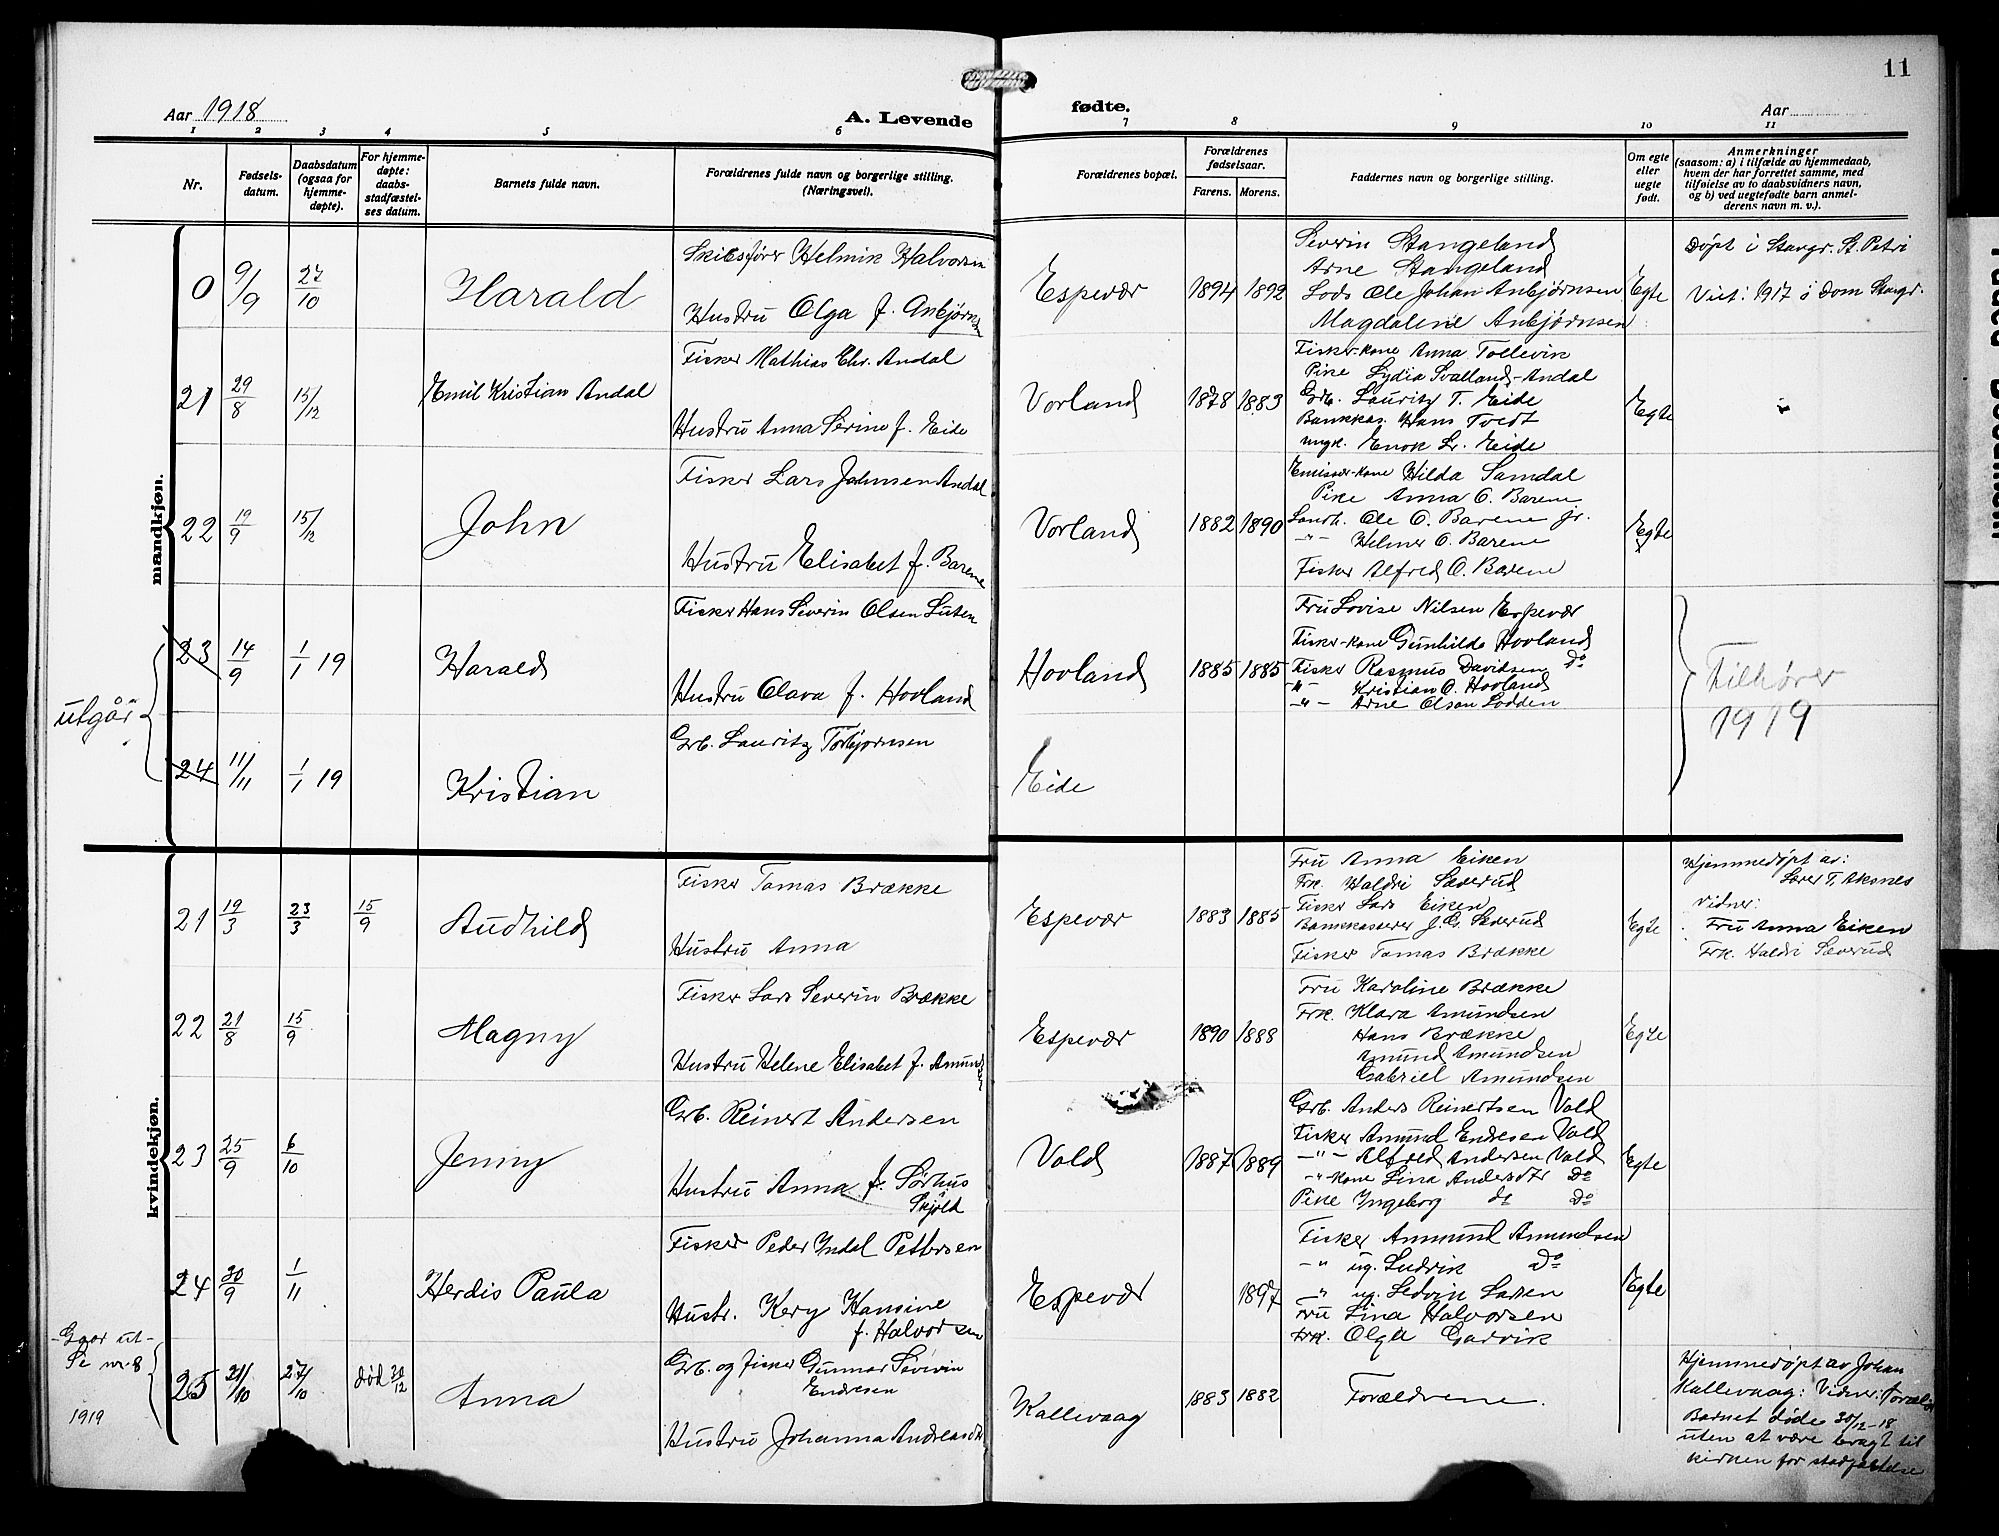 11
Aar 1918
A. Levende
fødte.
Aar
1 2 3 4 5 6 7 8 9 10 11
Nr.
Fødsels-
datum.
Daabsdatum
(ogsaa for
hjemme-
døpte).
For hjemme-
døpte:
daabs-
stadfæstel-
ses datum.
Barnets fulde navn.
Forældrenes fulde navn og borgerlige stilling.
(Næringsvei).
Forældrenes bopæl.
Forældrenes
fødselsaar.
Farens. Morens.
Faddernes navn og borgerlige stilling.
Om egte
eller
uegte
født.
Anmerkninger
(saasom: a) i tilfælde av hjemmedaab,
hvem der har forrettet samme, med
tilføielse av to daabsvidners navn,
og b) ved uegtefødte barn anmel-
derens navn m. v.).
mandkjøn.
0 9/9 27/10 Harald
Skibsfører Helmik Halvorsen
Hustru Olga f. Anbjørnsen
Espevær 1894 1892
Severin Stangeland
Arne Stangeland
Lods Ole Johan Anbjørnsen
Magdalene Anbjørnsen
Egte
Døpt i Stavgr. St. Petri
Viet: 1917 i Dom Stavgr.
21 29/8 15/12 Emil Kristian Andal
Fisker Mathias Chr. Andal
Hustru Anna Serine f. Eide
Vorland 1878 1883
Fisker-kone Anna Tollevik
Pike Lydia Svalland-Andal
Grb. Lauritz T. Eide
Bankkas. Hans Tvedt
ungk. Enok Lr. Eide
Egte
22 19/9 15/12 John
Fisker Lars Johnsen Andal
Hustru Elisabet f. Barene
Vorland 1882 1890
Emissær-kone Hilda Samdal
Pike Anna O. Barene
Landh. Ole O. Barene jr.
-"- Helmer O. Barene
Fisker Alfred O. Barene
Egte
utgår
23 14/9 1/1 19 Harald
Fisker Hans Severin Olsen Luten
Hustru Olava f. Hovland
Hovland 1885 1885
Fru Lovise Nilsen Espevær
Fisker-kone Gunhilde Hovland
Fisker Rasmus Davidsen do
-"- Kristian O. Hovland
-"- Arne Olsen Lodden
Tilhører
1919
24 11/11 1/1 19 Kristian
Grb. Lauritz Torbjørnsen
Eide
kvindekjøn.
21 19/3 23/3 15/9 Audhild
Fisker Tomas Brække
Hustru Anna
Espevær 1883 1885
Fru Anna Eiken
Frk. Haldri Sæverud
Fisker Lars Eiken
Bankkasserer J. G. Sæverud
Fisker Tomas Brække
Egte
Hjemmedøpt av:
Lærer T. Aksnes
Vidner:
Fru Anna Eiken
Frk. Haldri Sæverud
22 21/8 15/9 Magny
Fisker Lars Severin Brække
Hustru Helene Elisabet f. Amund
Espevær 1890 1888
Fru Karoline Brække
Frk. Klara Amundsen
Hans Brække
Amund Amundsen
Gabriel Amundsen
Egte
23 25/9 6/10 Jenny
Grb. Reinert Andersen
Hustru Anna f. Sørhus
Skjold
Vold 1887 1889
Grb. Anders Reinertsen Vold
Fisker Amund Endresen Vold
-"- Alfred Andersen Vold
-"- kone Lina Andersdtr do
Pike Ingeborg do do
Egte
24 30/9 1/11 Herdis Paula
Fisker Peder Indal Pettersen
Hustr. Kery Hansine
f. Halvorsen
Espevær 1897
Fisker Ammund Amundsen
-"- ug. Ludvik do
-"- ug. Ludvin Larsen
Fru Lina Halvorsen
Frk. Olga Garvik
Egte
-Gaar ut-
Se nr. 8
1919
25 21/10 27/10 død 30/12 Anna
Grb. og fisker Gunnar Severin
Endresen
Hustru Johanna Andreasdtr
Kallevaag 1883 1882
Forældrene.
Hjemmedøpt av Johan
Kallevaag: Vidner: Foræld
Barnet døde 30/12-18
uten at være bragt til
kirken for stadfæstelse